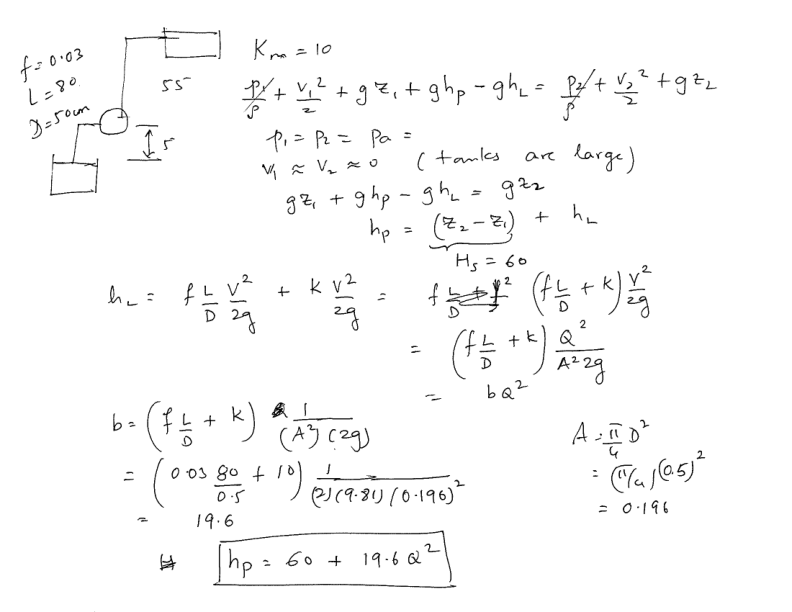 f = 0.03
L = 80
D = 50 cm
55
5
K_m = 10
p₁/ρ + V₁²/2 + g z₁ + g hp - g h_L = p₂/ρ + V₂²/2 + g z₂
p₁ = p₂ = pa =
V₁ ≈ V₂ ≈ 0 (tanks are large)
g z₁ + g hp - g h_L = g z₂
hp = (z₂ - z₁) + h_L
H_s = 60
h_L = f L/D V²/2g + K V²/2g = f L/D (f L/D + K) V²/2g
= (f L/D + K) Q²/A² 2g
= bQ²
b = (f L/D + K) 1/(A²)(2g)
A = π/4 D²
= (0.03 80/0.5 + 10) 1/(2)(9.81)(0.196)²
= (π/4)(0.5)²
= 19.6
= 0.196
hp = 60 + 19.6 Q²